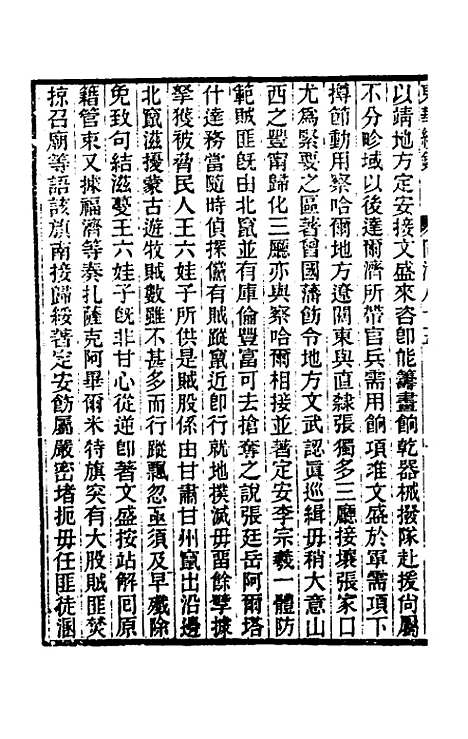 以靖地方定安接文盛來咨卽能籌畫餉乾器械撥隊赴援尙屬
不分畛域以後達爾濟所帶官兵需用餉項准文盛於軍需項下
撙節動用察哈爾地方遼闊東與直隸張獨多三廳接壤張家口
尤爲緊要之區著曾國藩飭令地方文武認眞巡緝毋稍大意山
西之豐甯歸化三廳亦與察哈爾相接並著定安李宗羲一體防
範賊匪旣由北竄並有庫倫豐富可去搶奪之說張廷岳阿爾塔
什達務當隨時偵探儻有賊蹤竄近卽行就地撲滅毋留餘孽據
拏獲被脅民人王六娃子所供是賊股係由甘肅甘州竄出沿邊
北竄滋擾蒙古遊牧賊數雖不甚多而行蹤飄忽亟須及早殲除
免致句結滋蔓王六娃子旣非甘心從逆卽著文盛按站解囘原
籍管束又據福濟等奏扎薩克阿畢爾米特旗突有大股賊匪焚
掠召廟等語該旗南接歸綏著定安飭屬嚴密堵扼毋任匪徒溷